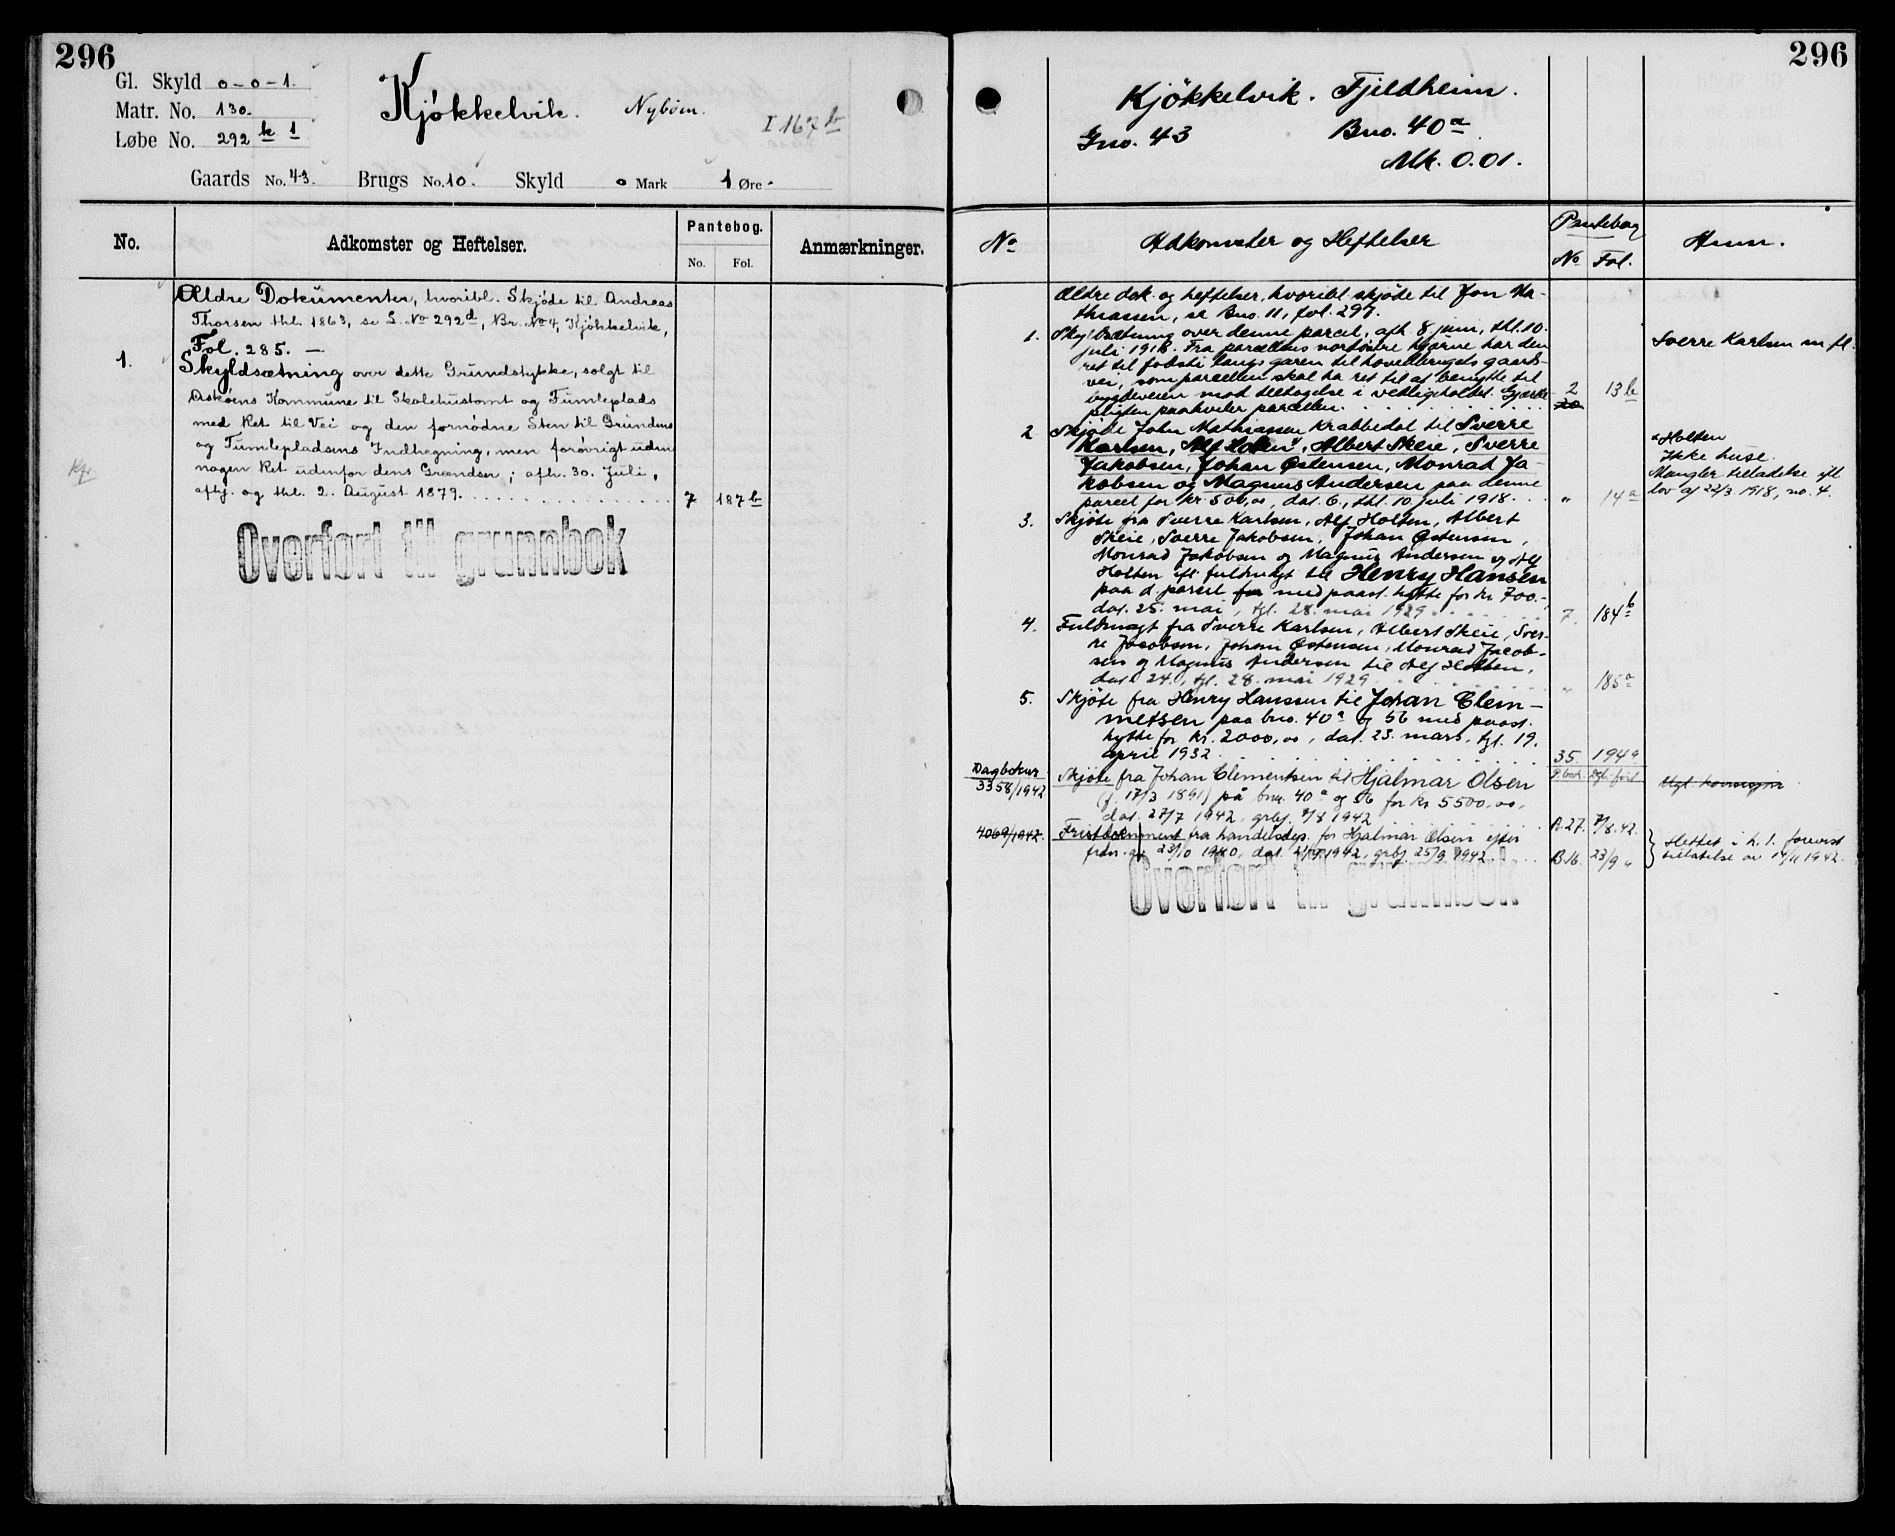 296
Gl. Skyld 0-0-1.
Matr. No. 130.
Løbe No. 292 k 1
Kjøkkelvik. Nybøm.
I 167 b
Gaards No. 43. Brugs No. 10. Skyld 0 Mark 1 Øre.
No. Adkomster og Heftelser. Pantebog. No. Fol. Anmærkninger.
Ældre Dokumenter, hvoribl. Skjøde til Andreas
Thorsen thl. 1863, se L. No 292d, Br. No 4, Kjøkkelvik,
Fol. 285. —
1. Skyldsætning over dette Grundstykke, solgt til
Askøens Kommune til Skolehustomt og Tumleplads
med Ret til Vei og den fornødne Sten til Grunden
og Tumlepladsens Indhegning, men forøvrigt uden
nogen Ret udenfor dens Grændser; afh. 30. Juli,
afhj. og thl. 2. August 1879. 7 187b
Overført til grunnbok
296
Kjøkkelvik. Fjeldheim.
Gno. 43 Bno. 40a
Mk. 0.01.
No Adkomster og Heftelser Pantebog No Fol. Anm.
Ældre dok. og heftelser, hvoribl. skjøde til Jon Ma-
thiassen, se Bno. 11, fol. 297.
1. Skyldsætning over denne parcel, afh. 8 juni, thl. 10.
juli 1918. Fra parcellens nordøstre hjørne har den
ret til fodsti langs gjæren til hovedbrugets gaards-
vei, som parcellen skal ha ret til at benytte til
bygdeveien mod deltagelse i vedligeholdet. Gjærde-
pligten paahviler parcellen. 2 20 13b
Sverre Karlsen m fl.
2 Skjøde John Mathiassen Krabbedal til Sverre
Karlsen, Alf Holten x, Albert Skeie, Sverre
Jakobsen, Johan Østensen, Monrad Ja-
kobsen og Magnus Andersen paa denne
parcel for kr. 500,00, dat. 6., thl. 10 juli 1918. " 14a
x Holten
Ikke huse.
Mangler tilladelse efl.
lov af 22/3 1918, no. 4.
3. Skjøte fra Sverre Karlsen, Alf Holten, Albert
Skeie, Sverre Jakobsen, Johan Østensen,
Monrad Jakobsen og Magnus Andersen og Alf
Holten efl. fuldmagt til Henry Hansen
paa d. parcel for med paast. hytte for kr. 700.-,
dat. 25. mai, tgl. 28. mai 1929 7. 184b
4. Fuldmagt fra Sverre Karlsen, Albert Skeie, Sver-
re Jacobsen, Johan Østensen, Monrad Jacob-
sen og Magnus Andersen til Alf Holten,
dat. 24., tgl. 28. mai 1929 " 185a
5. Skjøte fra Henry Hanssen til Johan Clem-
metsen paa bno. 40a og 56 med paast.
hytte for kr. 2000,00, dat. 23. mars, tgl. 19.
april 1932. 35. 194a
Dagboknr
3358/1942 Skjøte fra Johan Clementsen til Hjalmar Olsen
(f. 17/3 1891) på bnr. 40a og 56 for kr 5500,00,
dat. 27/7 1942, grbf. 7/8 1942 A.27. 7/8.42.
4069/1942. Fristdokument fra handelsdep. for Hjalmar Olsen efter
frdn. av 23/10 1940, dat. 21/9 1942, grbf. 25/9 1942 B.16. 23/9 "
Slettet i h. t. forevist
tillatelse av 14/11 1942.
Overført til grunnbok